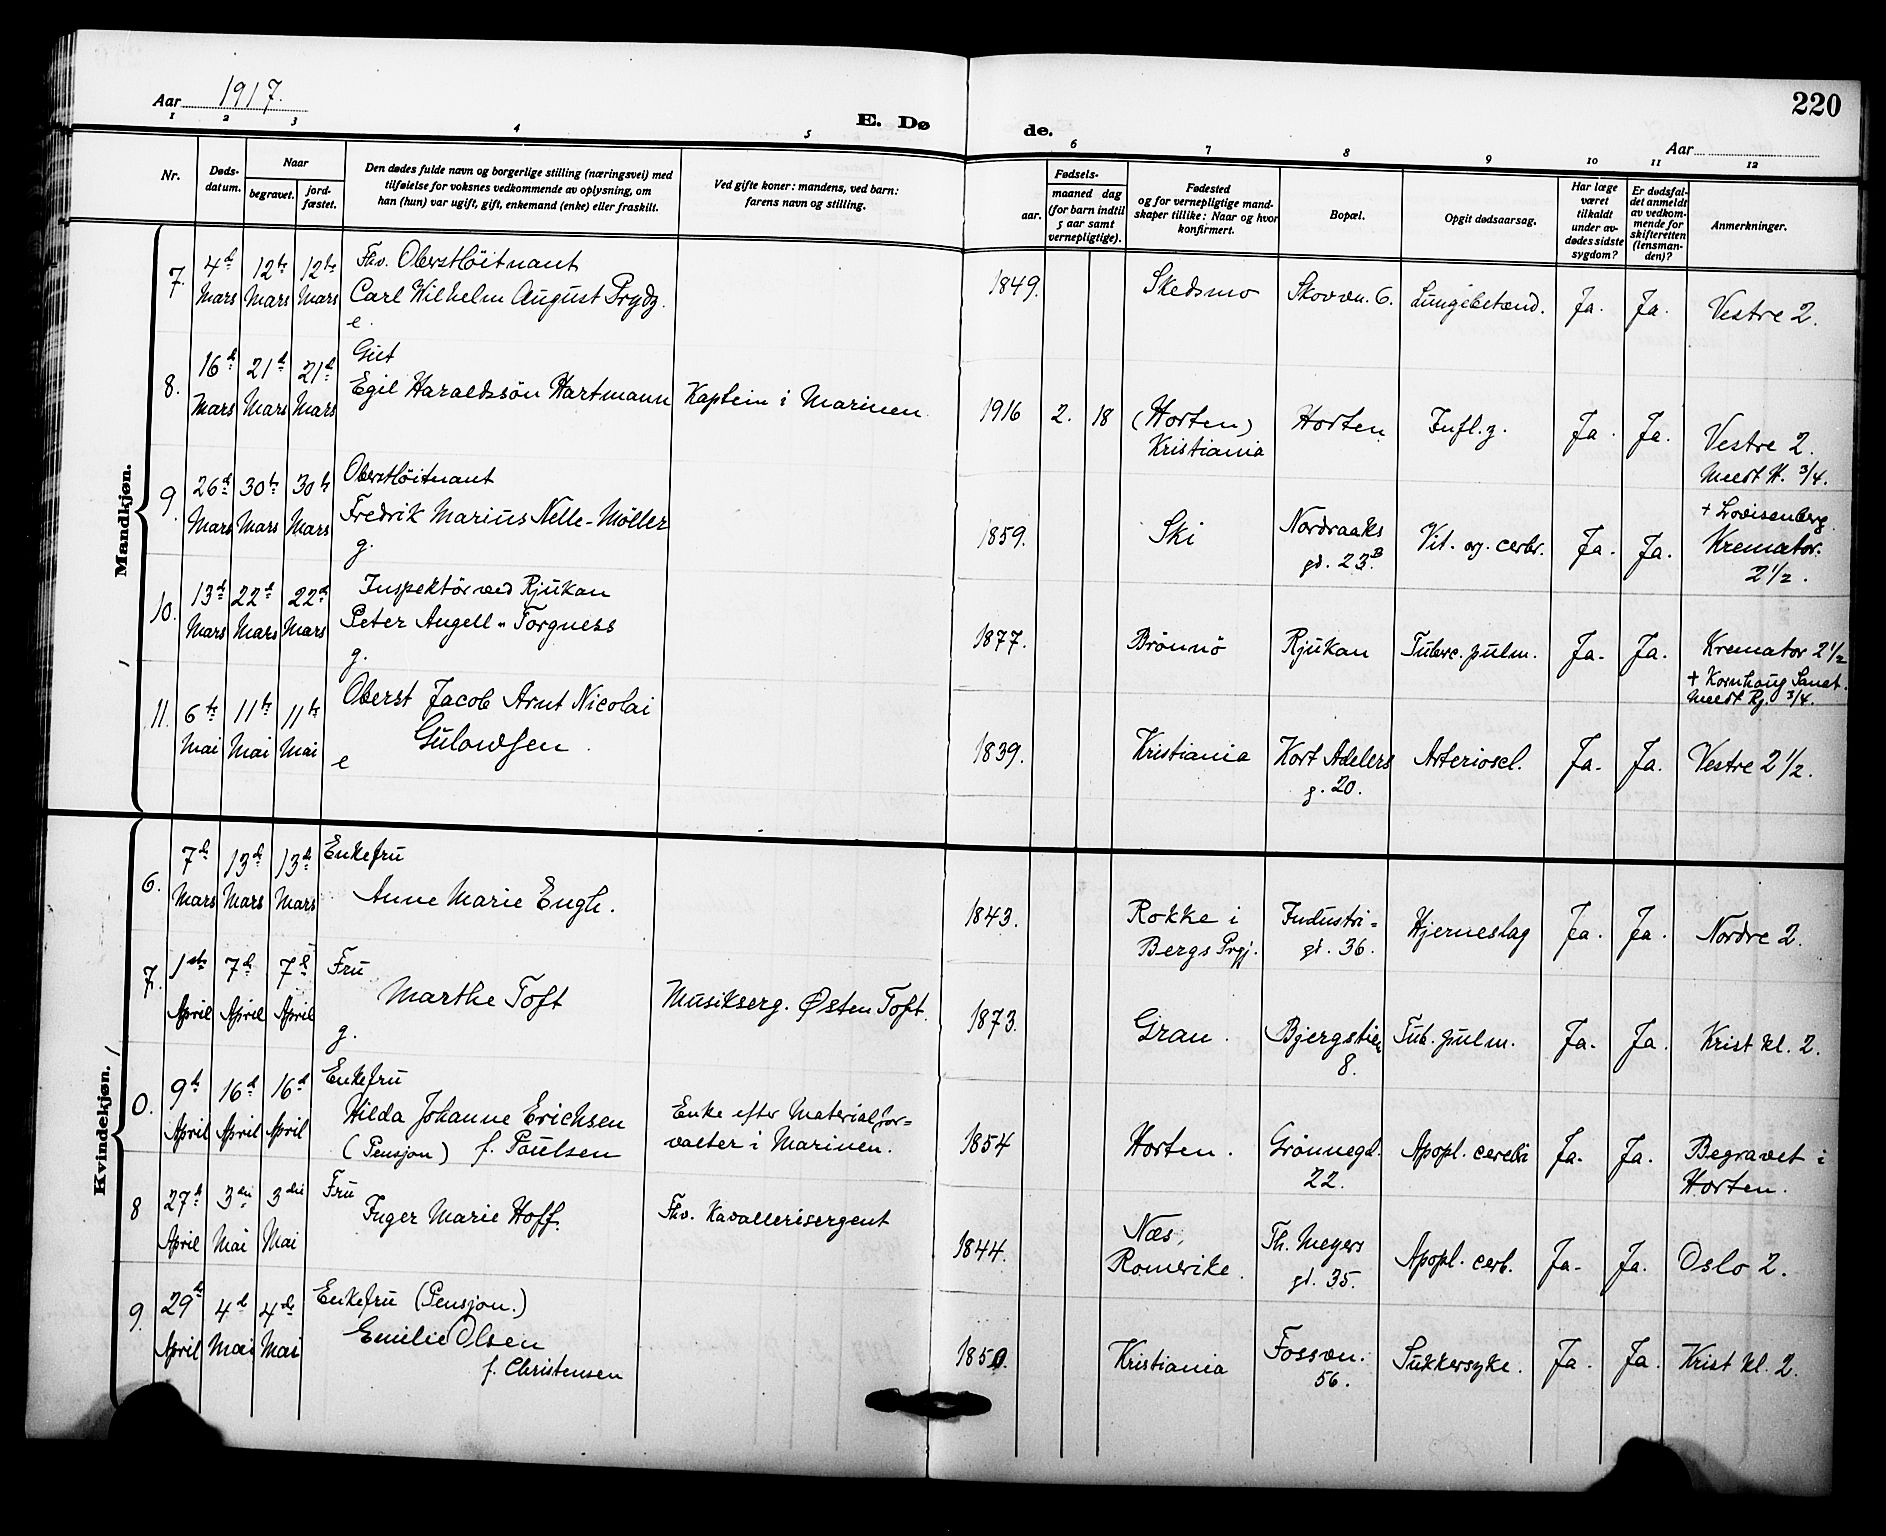 Aar 1917.
E. Døde.
Aar
220
1 2 3 4 5 6 7 8 9 10 11 12
Nr.
Døds-
datum.
Naar
begravet.
jord-
fæstet.
Den dødes fulde navn og borgerlige stilling (næringsvei) med
tilføielse for voksnes vedkommende av oplysning, om
han (hun) var ugift, gift, enkemand (enke) eller fraskilt.
Ved gifte koner: mandens, ved barn:
farens navn og stilling.
Fødsels-
aar.
maaned dag
(for barn indtil
5 aar samt
vernepligtige).
Fødested
og for vernepligtige mand-
skaper tillike: Naar og hvor
konfirmert.
Bopæl.
Opgit dødsaarsag.
Har læge
været
tilkaldt
under av-
dødes sidste
sygdom?
Er dødsfal-
det anmeldt
av vedkom-
mende for
skifteretten
(lensman-
den)?
Anmerkninger.
Mandkjøn.
7. 4de Mars 12te Mars 12te Mars
Fhv. Oberstløitnant
Carl Wilhelm August Prydz.
e.
1849. Skedsmo Skovvn. 6. Lungebetænd. Ja. Ja. Vestre 2.
8. 16d Mars 21d Mars 21d Mars
Gut
Egil Haraldssøn Hartmann Kaptein i Marinen
1916 2. 18 (Horten) Kristiania Horten Infl.z. Ja. Ja. Vestre 2.
Meedt H. 3/4.
9. 26d Mars 30te Mars 30te Mars
Oberstløitnant
Fredrik Marius Nelle-Møller
g.
1859. Ski Nordraaks gd. 23B. Vit. org. cerbr. Ja. Ja. + Lovisenberg
Kremator.
2 1/2.
10. 13d Mars 22d Mars 22d Mars
Inspektør ved Rjukan
Peter Angell-Torgness
g.
1877. Brönnö Rjukan Tuberc. pulm. Ja. Ja. Kremator 2 1/2
+ Kornhaug Sanat.
Meedt Rj. 3/4.
11. 6te Mai 11te Mai 11te Mai
Oberst Jacob Arnt Nicolai
Gulowsen
e
1839. Kristiania Kort Adelers g. 20. Arterioscl. Ja. Ja. Vestre 2 1/2.
Kvindekjøn.
6. 7de Mars 13de Mars 13de Mars
Enkefru
Anne Marie Engh.
1843. Rokke i Bergs Prgj. Industri- gd. 36. Hjerneslag Ja. Ja. Nordre 2.
7. 1ste April 7d April 7d April
Fru
Marthe Toft Musikserg. Østen Toft.
g.
1873. Gran. Bjergstien 8. Tub. pulm. Ja. Ja. Krist kl. 2.
0. 9d April 16d April 16d April
Enkefru
Hilda Johanne Erichsen
(Pensjon) f. Paulsen
Enke efter Materialfor-
valter i Marinen.
1854 Horten. Grønnegd. 22. Apopl. cerebri Ja. Ja. Begravet i
Horten.
8 27d April 3die Mai 3die Mai
Fru
Inger Marie Hoff. Fhv. Kavallerisergent
1844. Næs, Romerike. Th. Meyers gd. 35. Apopl. cerb. Ja. Ja. Oslo 2.
9. 29de April 4d Mai 4de Mai
Enkefru (Pensjon.)
Emilie Olsen
f. Christensen
1850. Kristiania Fossvn. 56. Sukkersyke. Ja. Ja. Krist kl. 2.